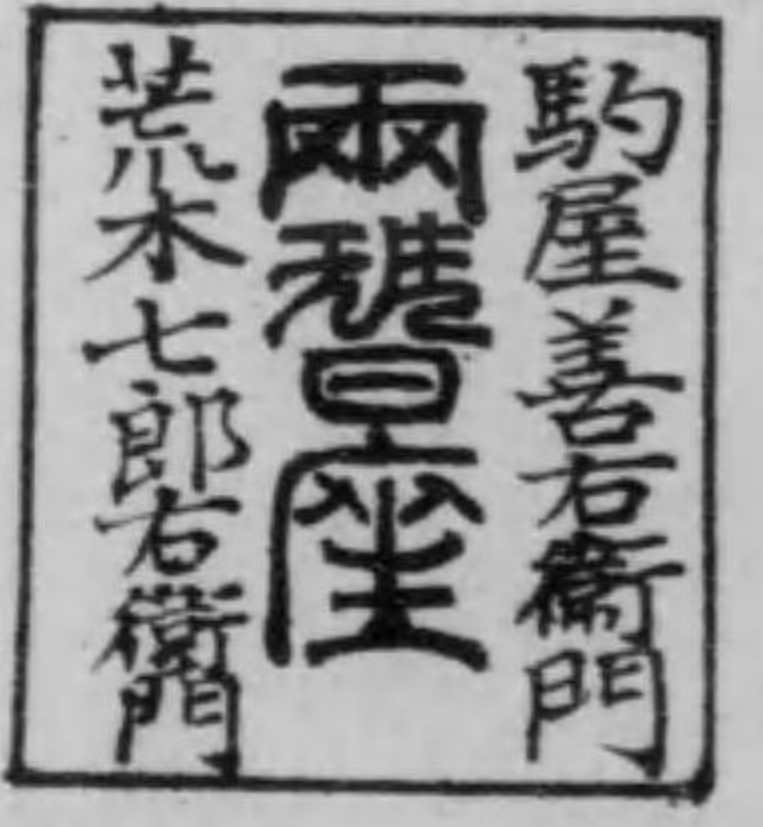 駒屋善右衞門
兩替座
荒木七郎右衞門